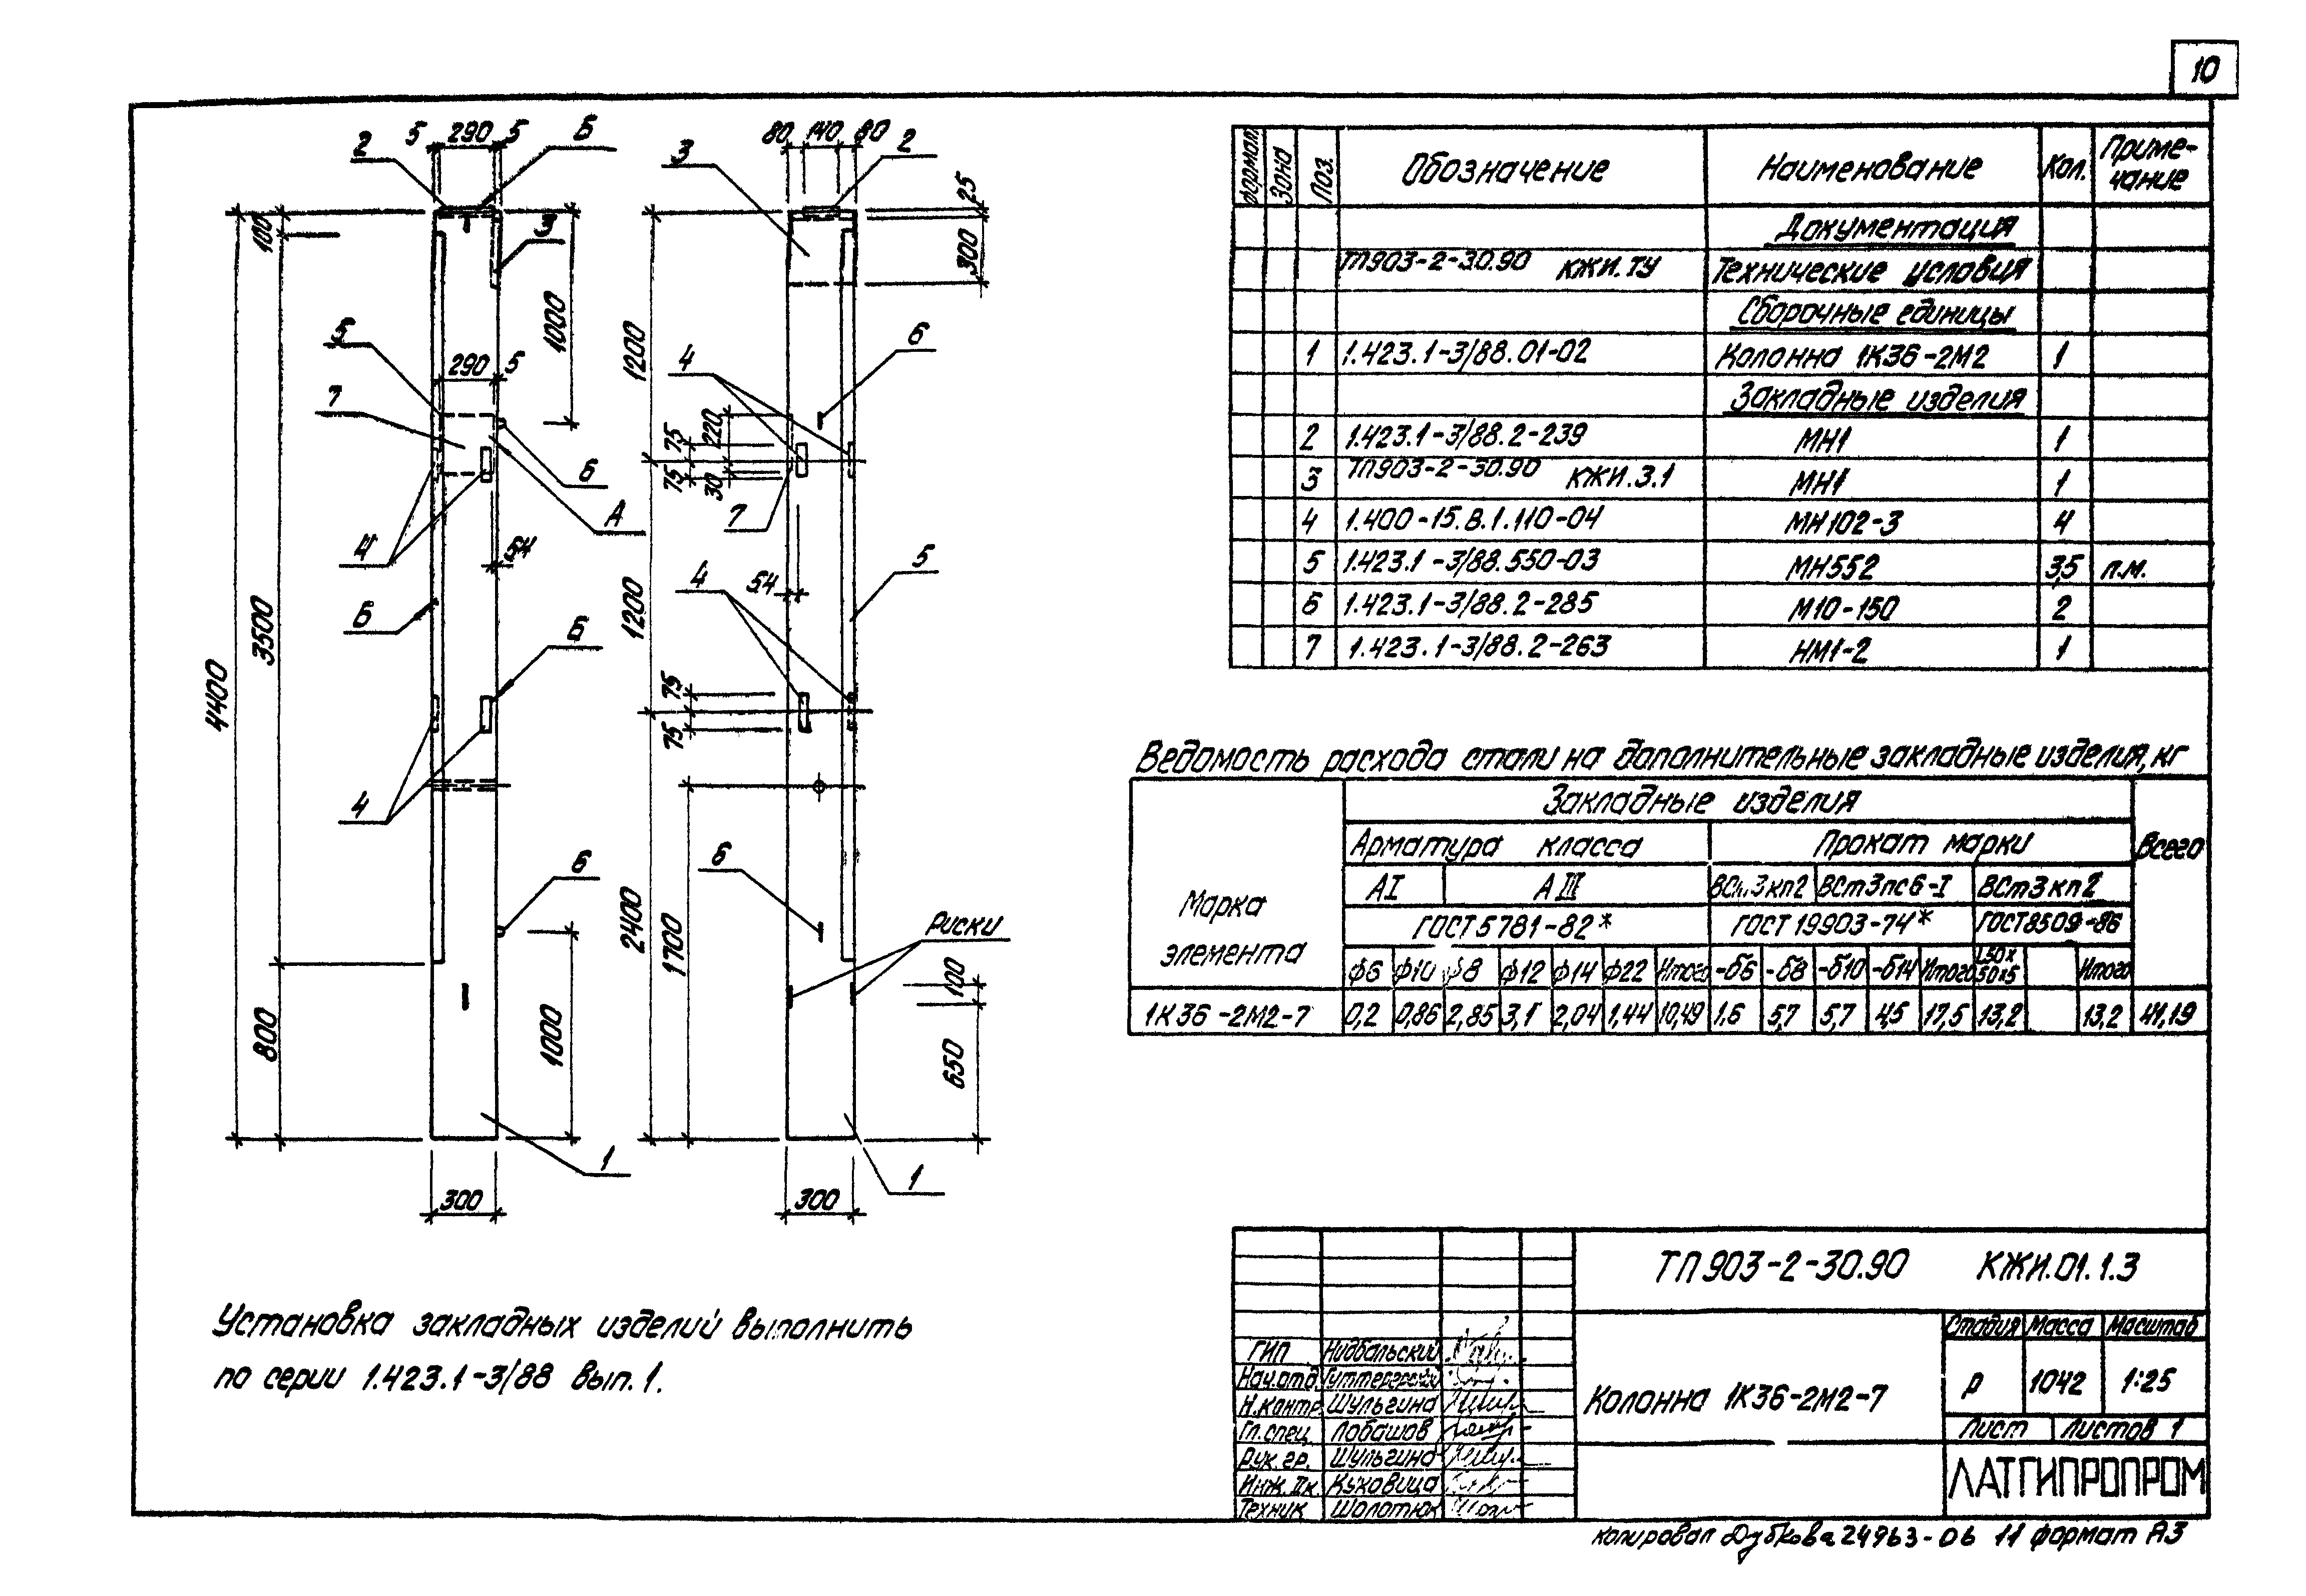 10
5 290 5 Б
2
3
5
290 5
7
4
Б
4
100
3500
4400
800
1000
6
А
54
Б
6
1000
1
300
80 140 80
2
3
25
300
1200
4
6
75
220
75
30
7
54
4
5
1200
75
75
2400
1700
6
Риски
100
650
1
300
Формат Зона Поз. Обозначение Наименование Кол. Приме-
чание
Документация
ТП903-2-30.90 КЖИ.ТУ Технические условия
Сборочные единицы
1 1.423.1-3/88.01-02 Колонна 1К36-2М2 1
Закладные изделия
2 1.423.1-3/88.2-239 МН1 1
3 ТП903-2-30.90 КЖИ.3.1 МН1 1
4 1.400-15.В.1.110-04 МН102-3 4
5 1.423.1-3/88.550-03 МН552 3,5 п.м.
6 1.423.1-3/88.2-285 М10-150 2
7 1.423.1-3/88.2-263 НМ1-2 1
Ведомость расхода стали на дополнительные закладные изделия, кг
Марка
элемента
Закладные изделия
Всего
Арматура класса Прокат марки
АI АIII ВСт.3кп2 ВСт3пс6-I ВСт3кп2
ГОСТ 5781-82* ГОСТ 19903-74* ГОСТ8509-86
ф6 ф10 ф8 ф12 ф14 ф22 Итого -δ6 -δ8 -δ10 -δ14 Итого L50х
50х5 Итого
1К36-2М2-7 0,2 0,86 2,85 3,1 2,04 1,44 10,49 1.6 5,7 5,7 4,5 17,5 13,2 13,2 41,19
Установка закладных изделий выполнить
по серии 1.423.1-3/88 вып. 1.
ТП 903-2-30.90 КЖИ.01.1.3
Колонна 1К36-2М2-7
Стадия Масса Масштаб
р 1042 1:25
Лист Листов 1
ЛАТГИПРОПРОМ
ГИП Нидбальский
Нач.отд.
Н.контр. Шульгина
Гл.спец. Лобашов
Рук.гр. Шульгина
Инж. IIк. Куховица
Техник Шолотюк
копировал Дубкова 24963-06 11 формат А3